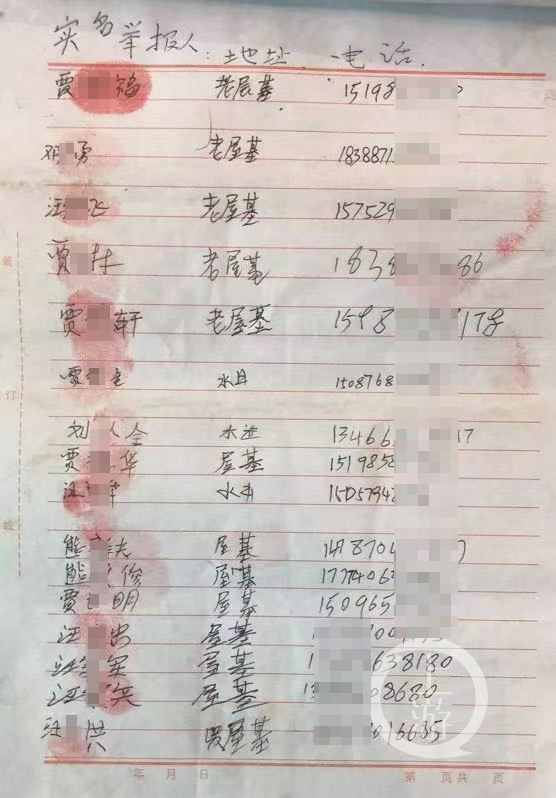 实名举报人：地址 电话.
贾 福 老屋基 15198
邓 勇 老屋基 1838871
汪 飞 老屋基 157529
贾 林 老屋基 1838 86
贾 轩 老屋基 1598 178
贾 水井 1508768
刘 全 水井 13466 17
贾 华 屋基 1519858
汪 水井 15057942
熊 屋基 1478704
熊 俊 屋基 1774063
贾 明 屋基 150965
汪 忠 屋基
汪 军 屋基 1 638180
汪 兵 屋基 13 08680
汪 洪 屋基 016685
装
订
线
上游
年 月 日 第 页共 页